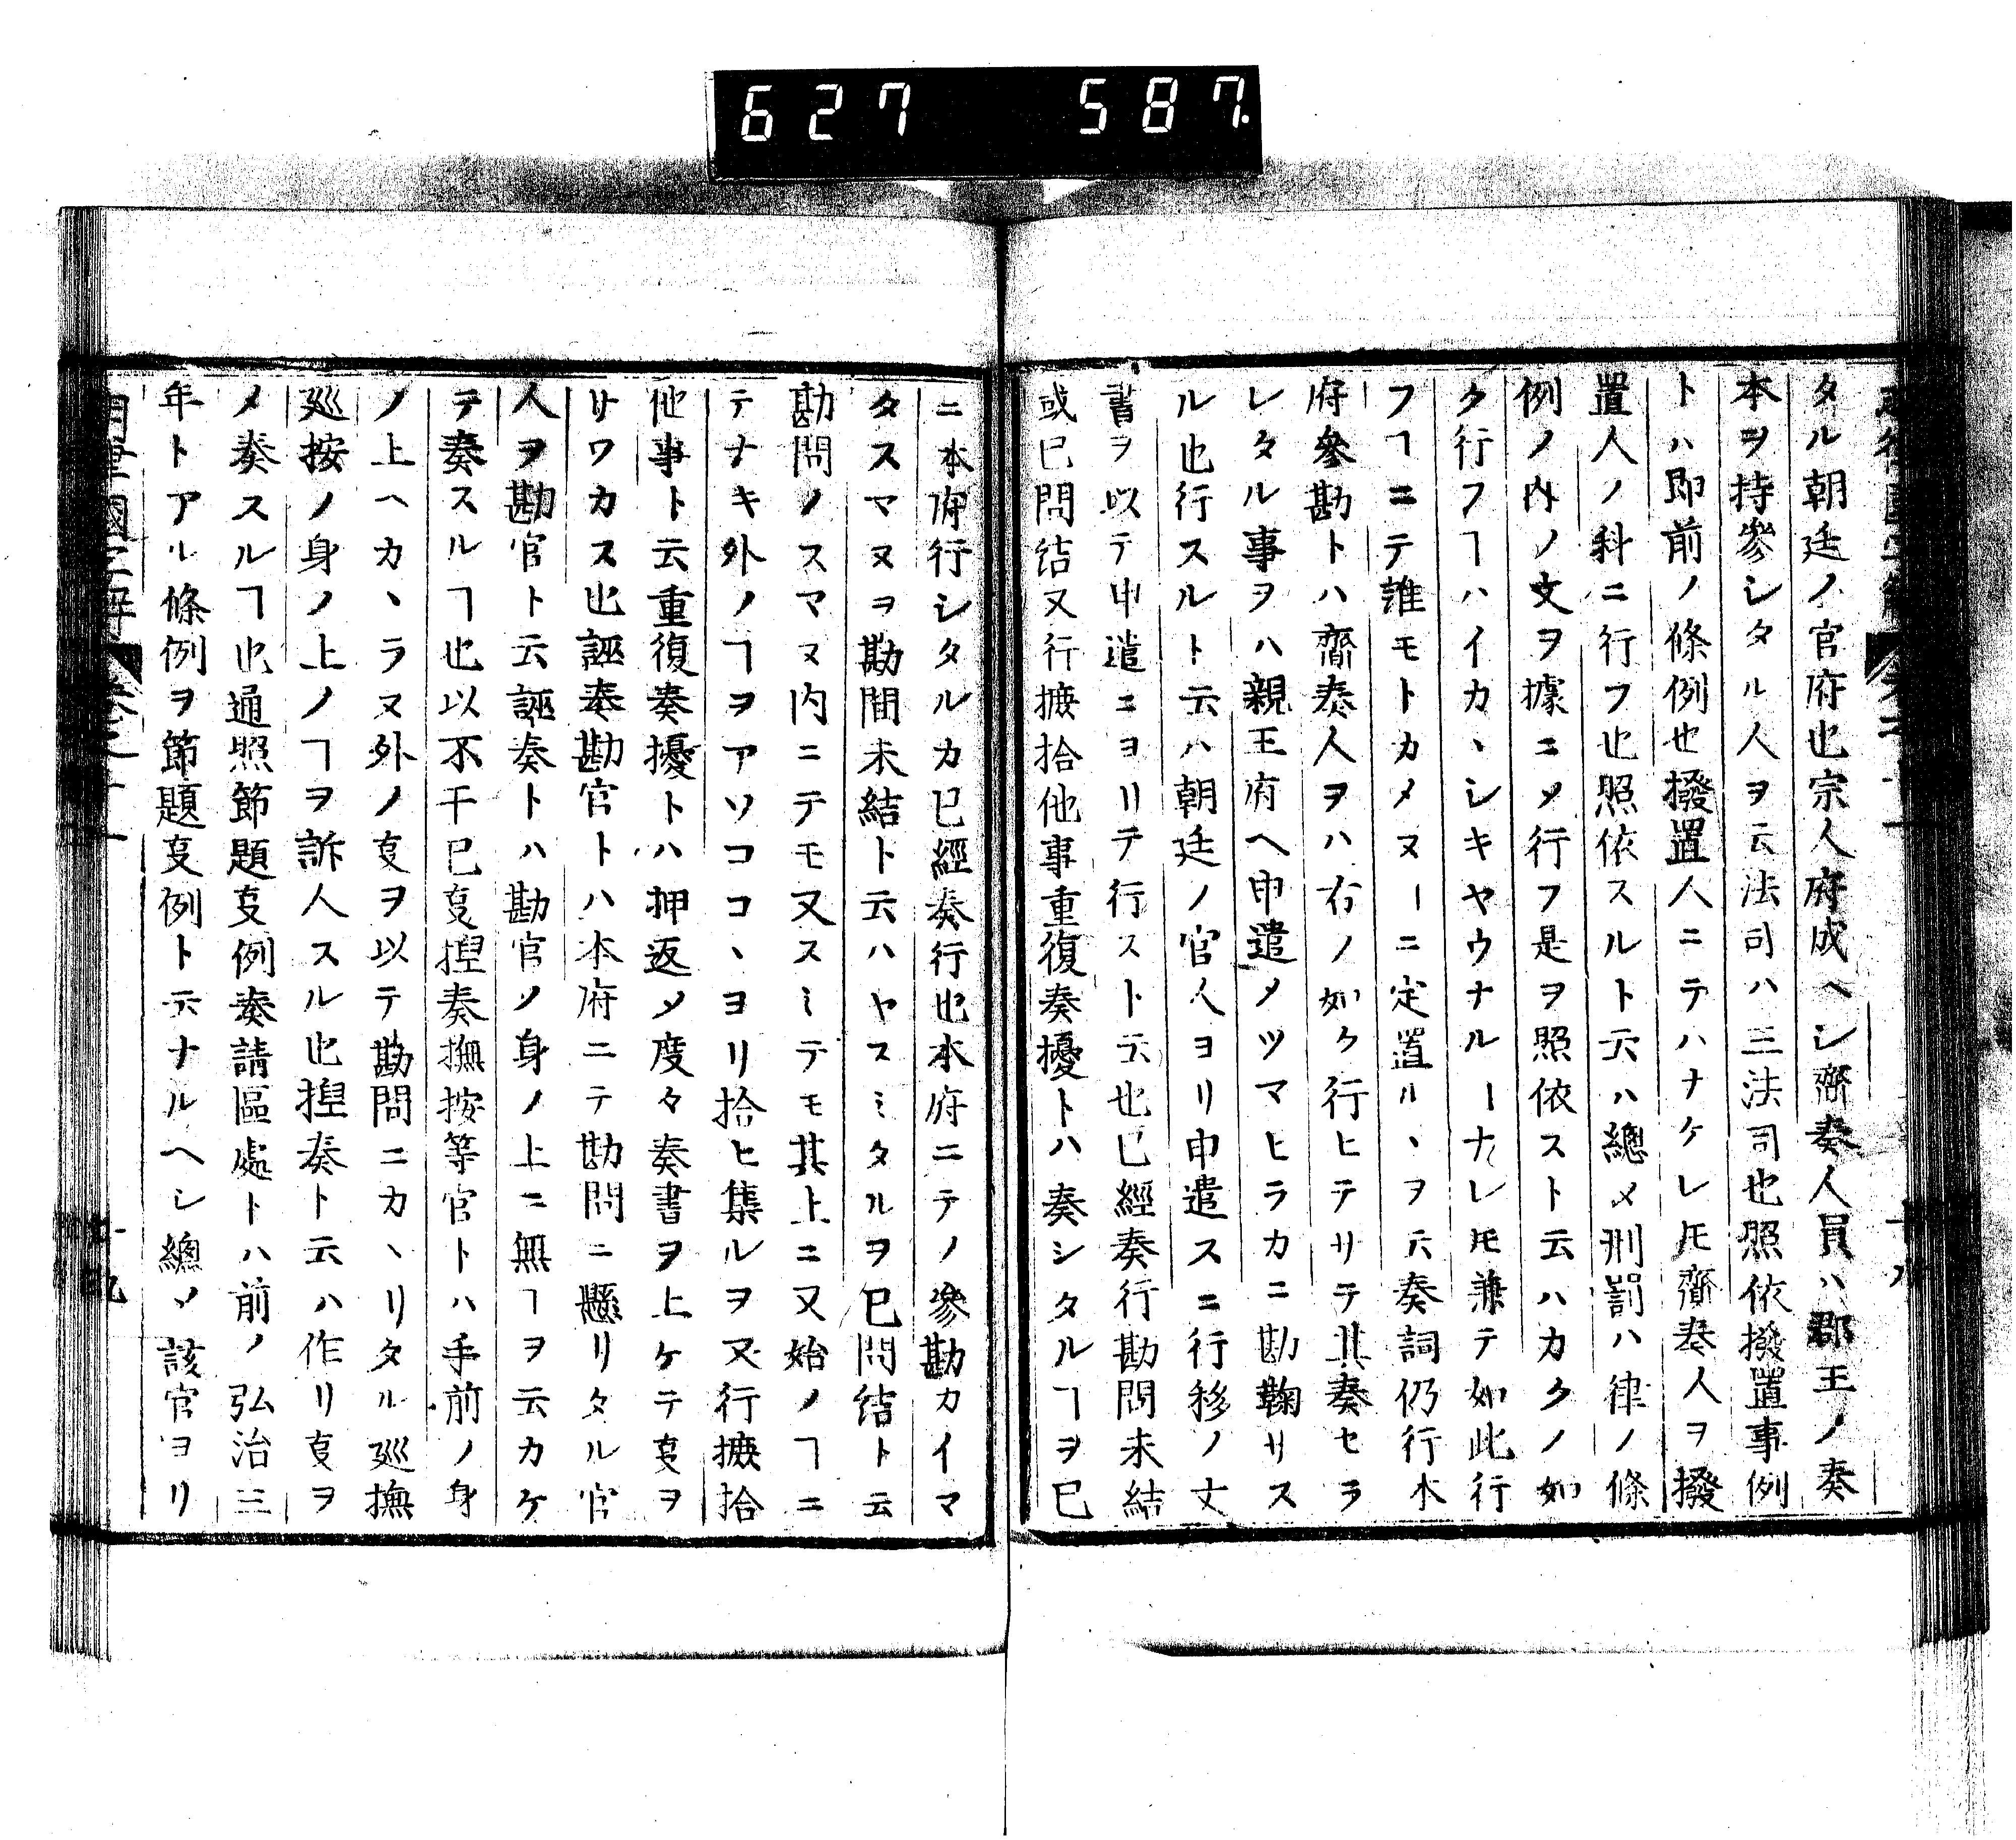 627 587.
タル朝廷ノ官府也宗人府成ヘシ齎奏人員ハ郡王ノ奏
本ヲ持參シタル人ヲ云法司ハ三法司也照依撥置事例
トハ即前ノ條例也撥置人ニテハナケレ𪜈齎奏人ヲ撥
置人ノ科ニ行フ也照依スルト云ハ總メ刑罰ハ律ノ條
例ノ内ノ文ヲ據ニメ行フ是ヲ照依スト云ハカクノ如
ク行フヿハイカヽシキヤウナルーナレ𪜈兼テ如此行
フヿニテ誰モトカメヌーニ定置ルヽヲ云奏詞仍行本
府參勘トハ齎奏人ヲハ右ノ如ク行ヒテサテ其奏セラ
レタル事ヲハ親王府ヘ申遣メツマヒラカニ勘鞠サス
ル也行スルト云ハ朝廷ノ官人ヨリ申遣スニ行移ノ文
書ヲ以テ申遣ニヨリテ行ストス云也已經奏行勘問未結
或已問結又行摭拾他事重復奏擾トハ奏シタルヿヲ已
ニ本府行シタルカ已經奏行也本府ニテノ參勘カイマ
タスマヌヲ勘問未結ト云ハヤスミタルヲ已問結ト云
勘問ノスマヌ内ニテモ又スミテモ其上ニ又始ノヿニ
テナキ外ノヿヲアソココヽヨリ拾ヒ集ルヲ又行摭拾
他事ト云重復奏擾トハ押返メ度々奏書ヲ上ケテ㕝ヲ
サワカス也誣奏勘官トハ本府ニテ勘問ニ懸リタル官
人ヲ勘官ト云誣奏トハ勘官ノ身ノ上ニ無ヿヲ云カケ
テ奏スルヿ也以不干已㕝揑奏撫按等官トハ手前ノ身
ノ上ヘカヽラヌ外ノ㕝ヲ以テ勘問ニカヽリタル廵撫
廵按ノ身ノ上ノヿヲ訴人スル也揑奏ト云ハ作リ㕝ヲ
メ奏スルヿ也通照節題㕝例奏請區處トハ前ノ弘治三
年トアル條例ヲ節題㕝例ト云ナルヘシ總メ該官ヨリ